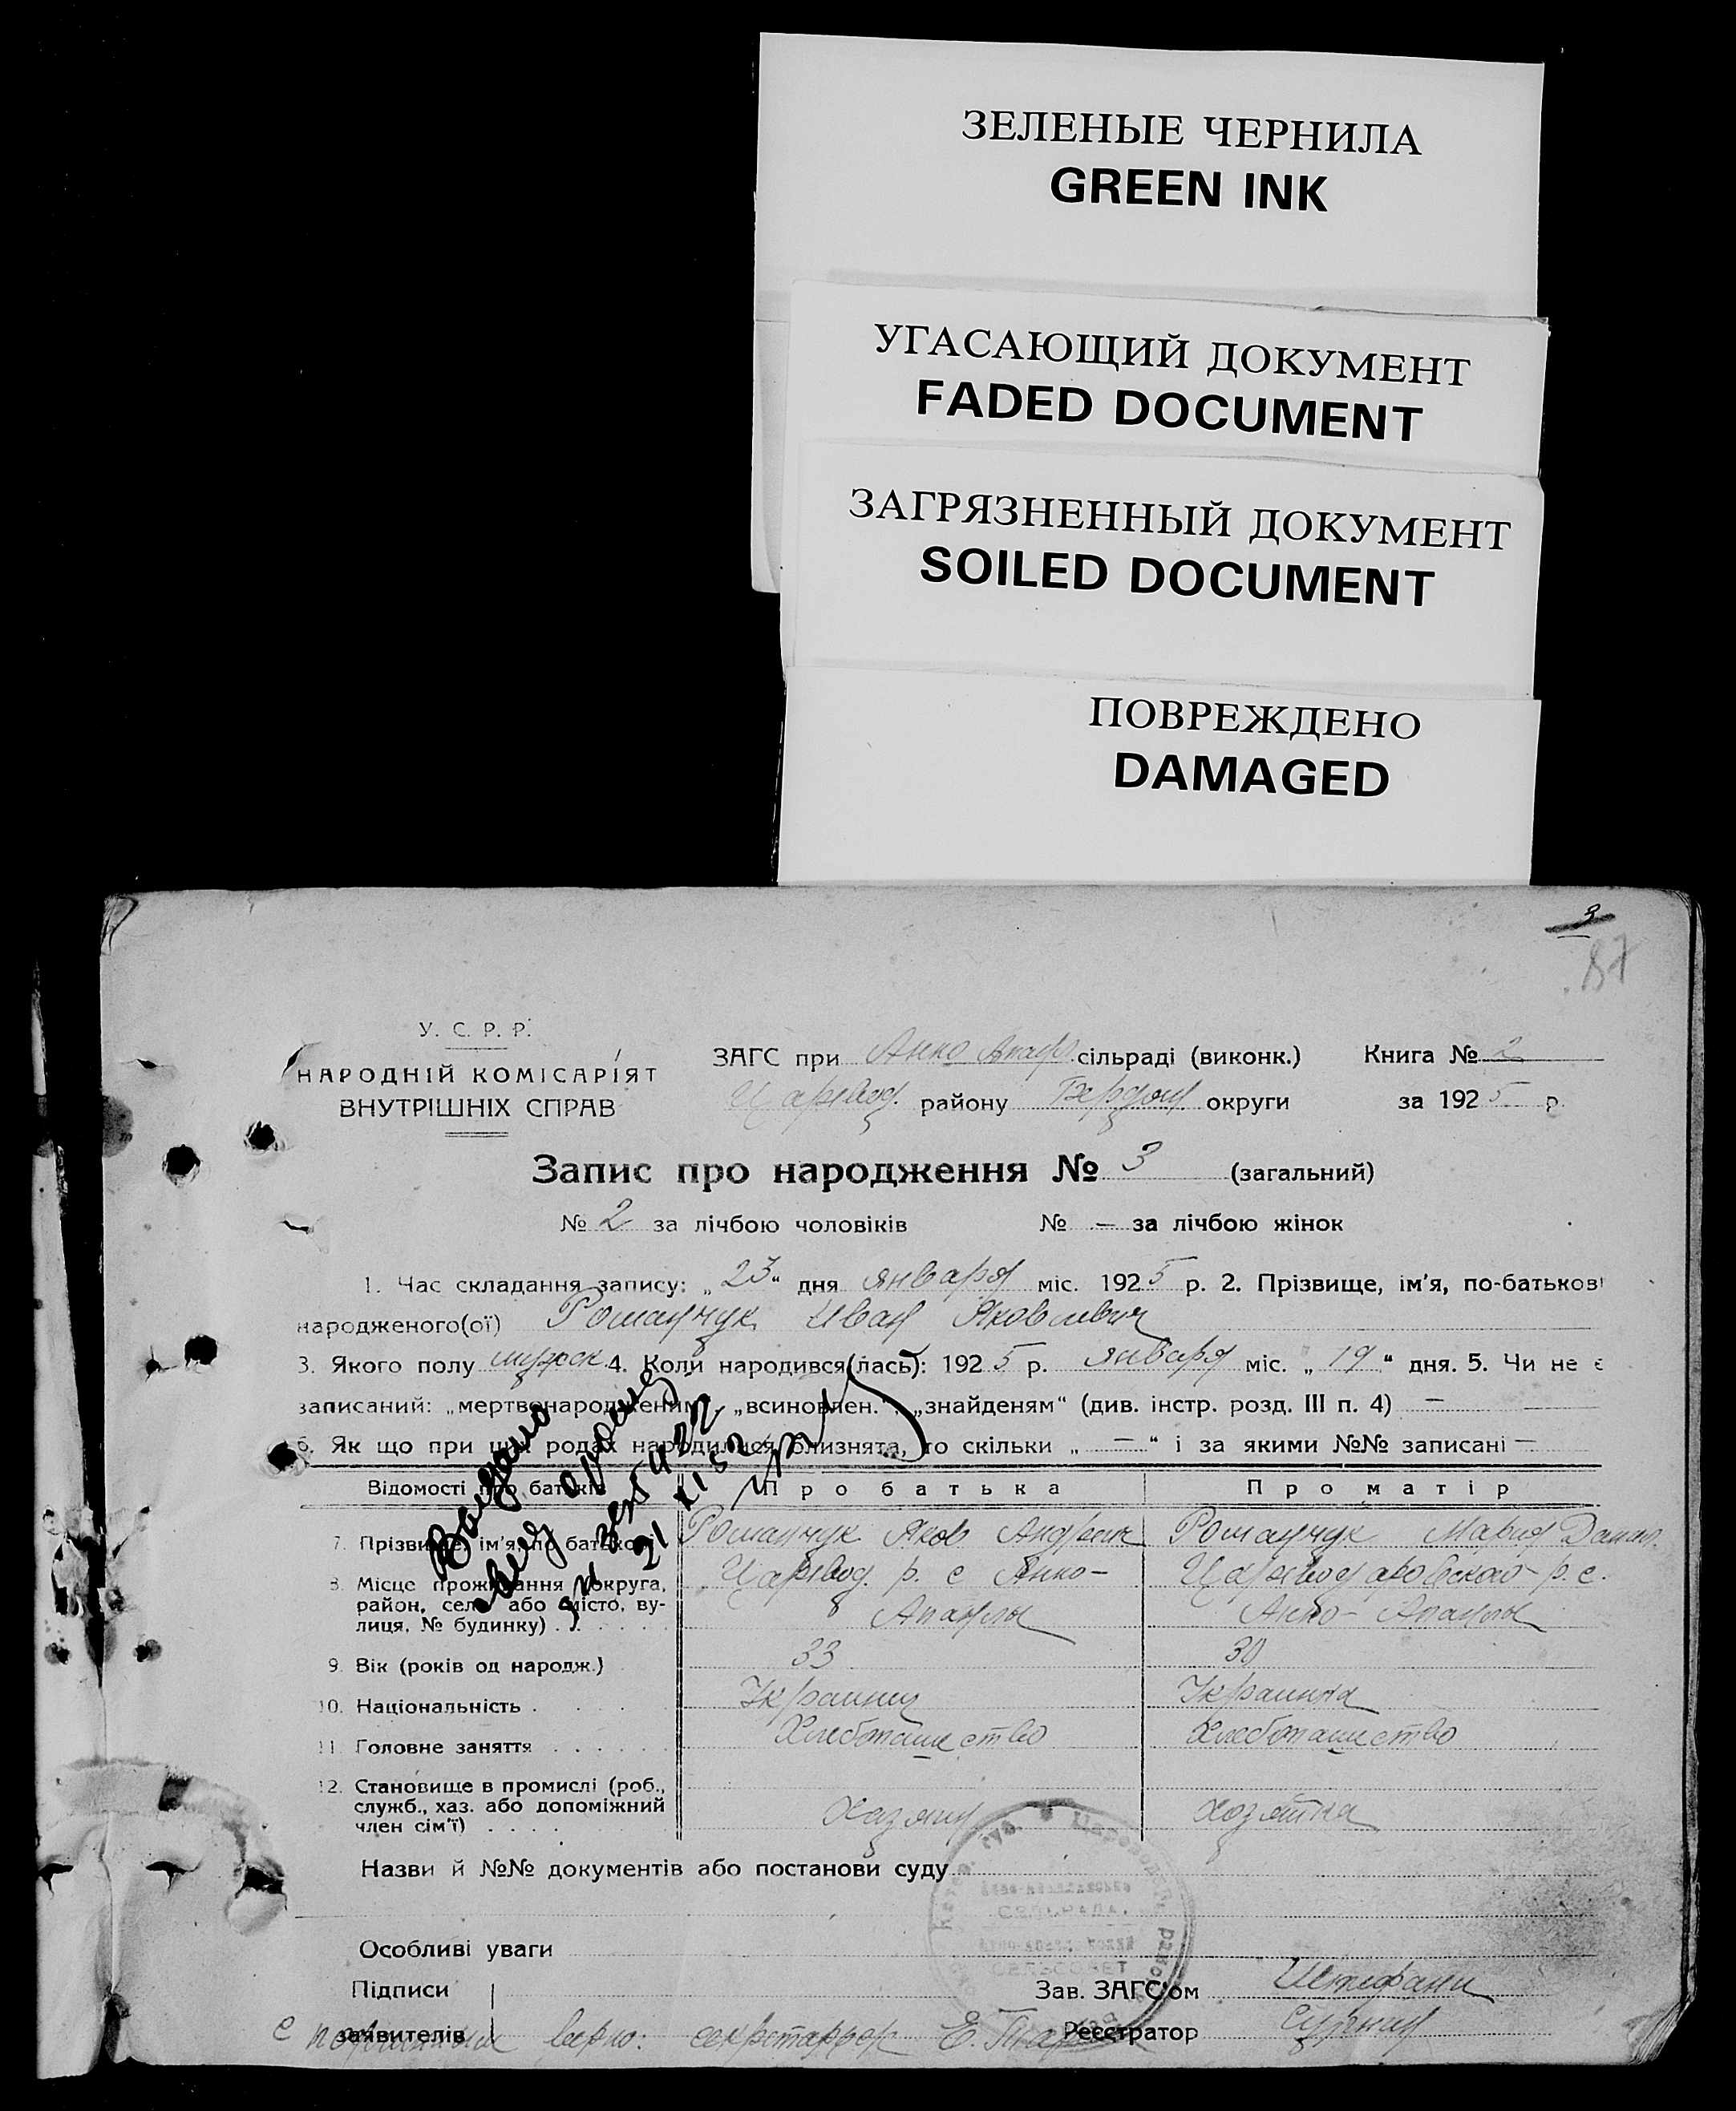 ЗЕЛЕНЫЕ ЧЕРНИЛА
GREEN INK
УГАСАЮЩИЙ ДОКУМЕНТ
FADED DOCUMENT
ЗАГРЯЗНЕННЫЙ ДОКУМЕНТ
SOILED DOCUMENT
ПОВРЕЖДЕНО
DAMAGED
3
87
У. С. Р. Р.
НАРОДНІЙ КОМІСАРІЯТ
ВНУТРІШНІХ СПРАВ
ЗАГС при Анно Апанл. сільраді (виконк.) Книга № 2
Царевод. району Бердян округи за 1925 р.
Запис про народження № 3 (загальний)
№ 2 за лічбою чоловіків № — за лічбою жінок
1. Час складання запису: „23“ дня января міс. 1925 р. 2. Прізвище, ім'я, по-батькові
народженого(ої) Романчук Иван Яковлевич
3. Якого полу мужск 4. Коли народився(лась): 1925 р. января міс. „19“ дня. 5. Чи не є
записаний: „мертвонародженим“, „всиновлен.“, „знайденям“ (див. інстр. розд. III п. 4) —
6. Як що при цих родах народилися близнята, то скільки „—“ і за якими №№ записані —
Відомості про батьків Про батька Про матір
7. Прізвище, ім'я, по батькові Романчук Яков Андреев Романчук Мария Данил.
8. Місце проживання (округа, район, село або місто, вулиця, № будинку) Царевод. р. с Анно- Апанлы Царевод аровского р. с. Анно- Апанлы
9. Вік (років од народж.) 33 30
10. Національність Украинец Украинка
11. Головне заняття Хлебопашество Хлебопашество
12. Становище в промислі (роб., служб., хаз. або допоміжний член сім'ї) Хазяин Хозяйка
Назви й №№ документів або постанови суду
Особливі уваги
Підписи заявителів
Зав. ЗАГС'ом
Реєстратор
С подлинным верно: секретарь Е.
Видано
21 XI 52
СЕЛЬРАДА.
СЕЛЬСОВЕТ